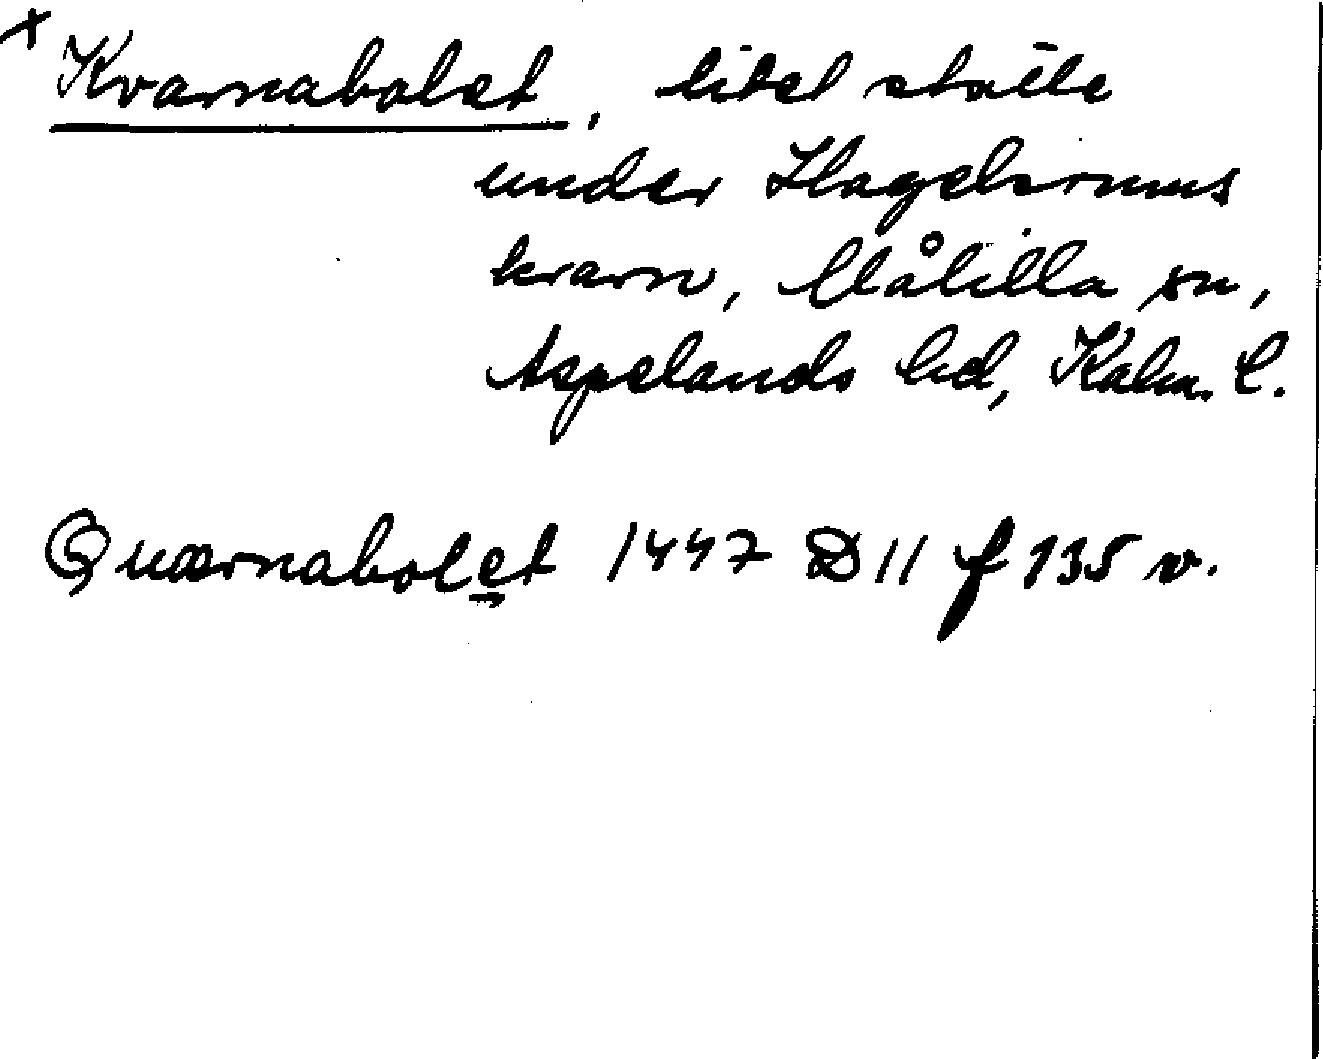 x Kvarnabolet, litet ställe
under Hagelsrums
kvarn, Målilla sn,
Aspelands hd, Kalm. l.
Quærnabolet 1447 D 11 f 135 v.